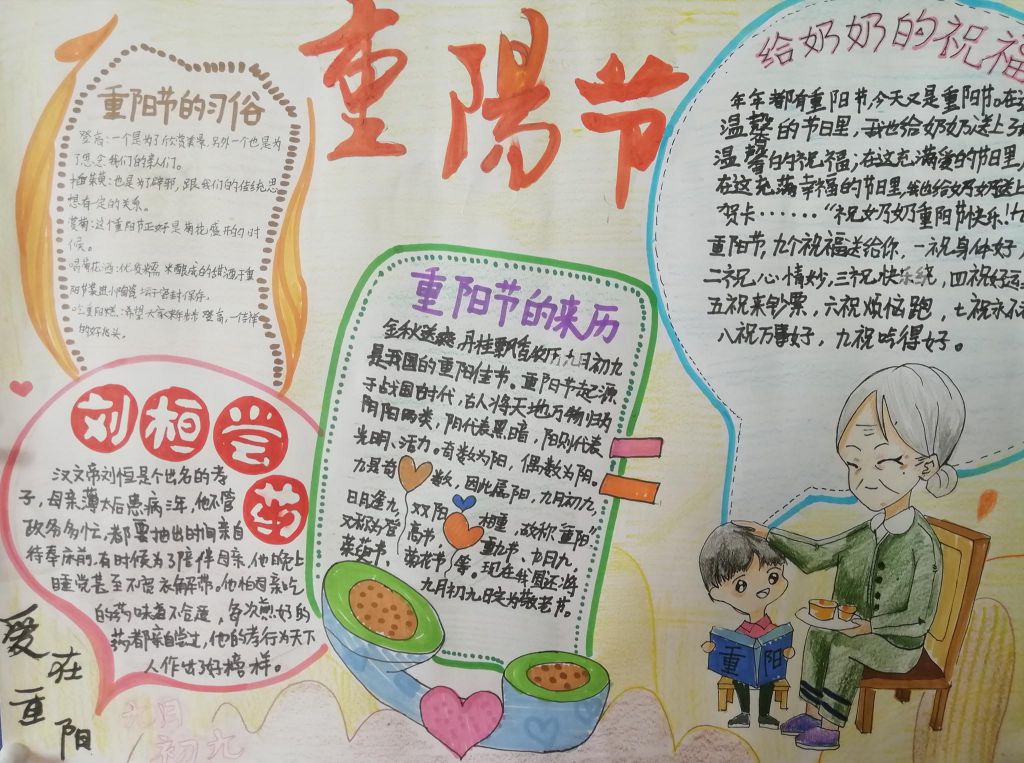 重陽节
重阳节的习俗
登高:一个是为了欣赏美景,另外一个也是为
了思念我们的亲人们。
插茱萸:也是为了辟邪,跟我们的传统思
想有一定的关系。
赏菊:这个重阳节正好是菊花盛开的时
候。
喝菊花酒:
阳节
吃重阳糕:希望大家步步登高,一
的好兆头。
刘桓尝药
汉文帝刘恒是个出名的孝
子,母亲薄太后患病3年,他不管
政务多忙,都要抽出时间亲自
侍奉床前,有时候为了陪伴母亲,他晚上
睡觉甚至不宽衣解带。他怕母亲吃
的药味道不合适,每次煎好的
药都亲自尝过,他的孝行为天下
人作出了好榜样。
重阳节的来历
金秋送爽,丹桂飘香
九月初九
是我国的重阳佳节。重阳节起源
于战国时代,古人将天地万物归为
阴阳两类,阴代表黑暗,阳则代表
光明、活力,奇数为阳,偶数为阳。
九是奇数,因此属阳,九月初九,
日月逢九,双阳相重,故称"重阳"
又称为登高节、重九节、九日九、
茱萸节、菊花节等。现在我国还将
九月初九日定为敬老节。
给奶奶的祝福
年年都有重阳节,今天又是重阳节。在
温馨的节日里,我也给奶奶送上
温馨的祝福;在这充满爱的节日里,
在这充满幸福的节日里,我也给奶奶送上
贺卡······"祝奶奶重阳节快乐!
重阳节,九个祝福送给你,一祝身体好,
二祝心情妙,三祝快乐绕,四祝好运
五祝来钞票,六祝烦恼跑,七祝永
八祝万事好,九祝吃得好。
重阳
爱在重阳
九月
初九